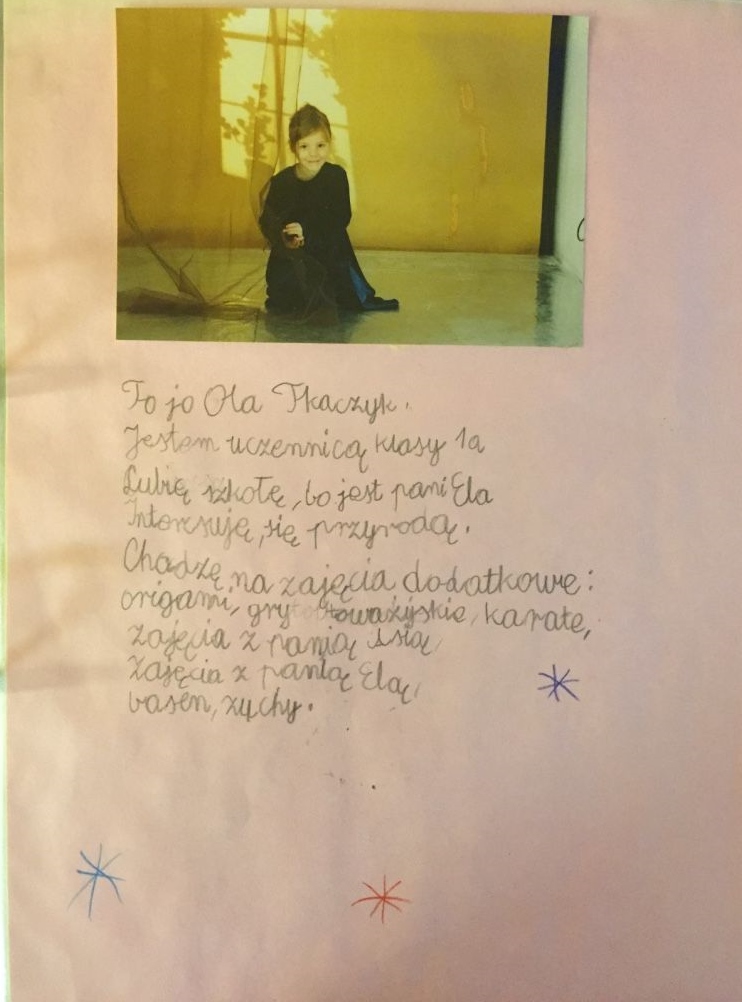 To jo Ola Tkaczyk.
Jestem uczennicą klasy 1a
Lubię szkołę, bo jest pani Ela
Interesuję się przyrodą.
Chodzę na zajęcia dodatkowe:
origami, gry toważyskie, karate,
zajęcia z panią Asią,
Zajęcia z panią Elą,
basen, zuchy.